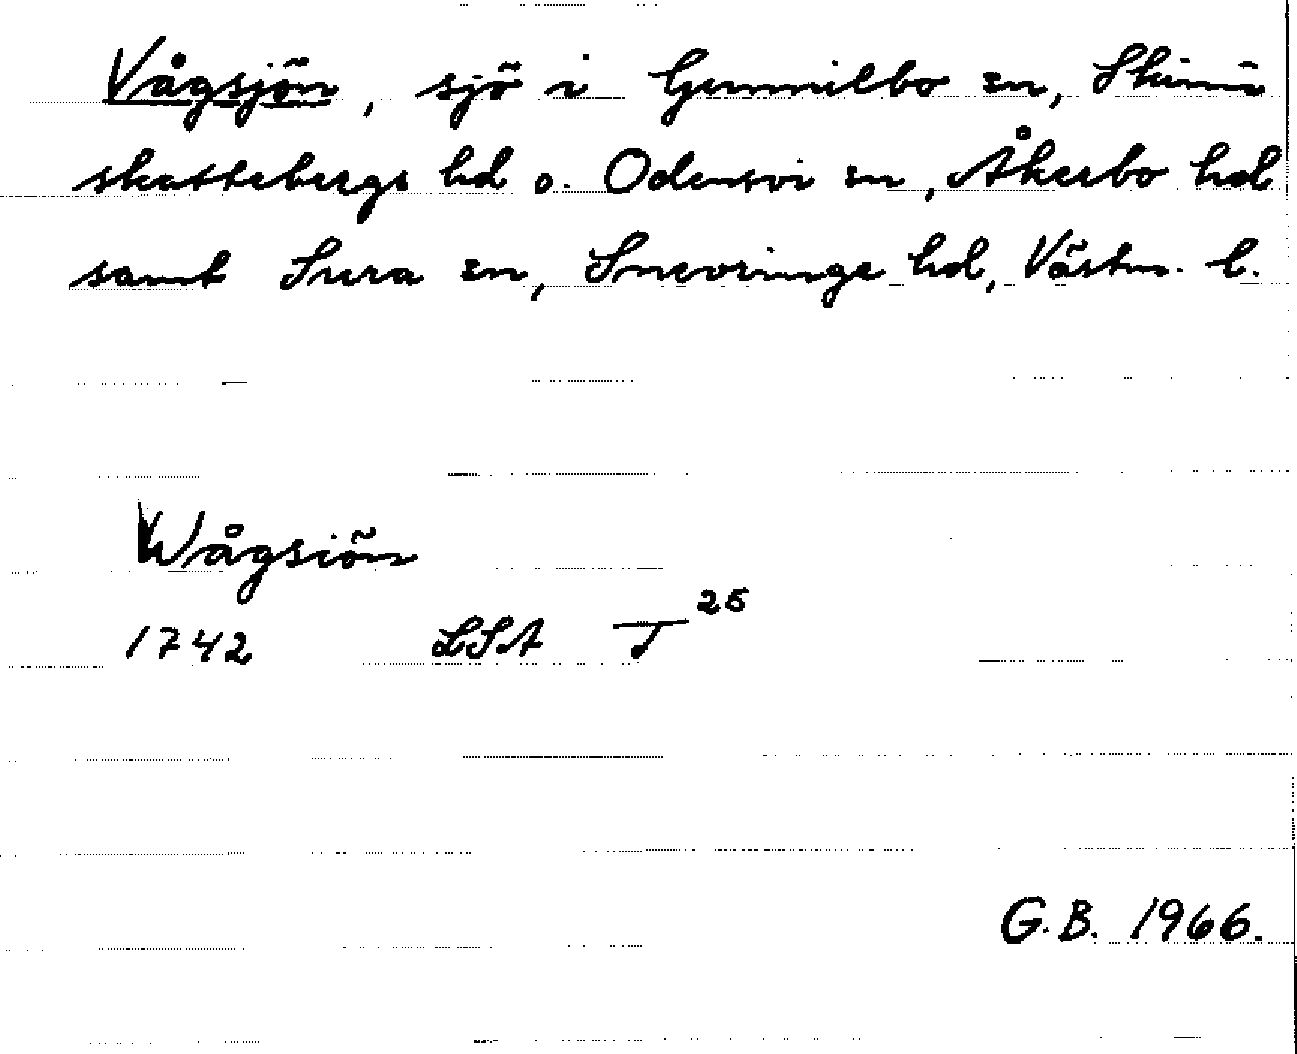 Vågsjön, sjö i Gunnilbo sn, Skinn
skattebergs hd o. Odensvi sn, Åkerbo hd
samt Sura sn, Snevringe hd, Västm. l.
Wågsiön
1742 LSA T 26
G.B. 1966.